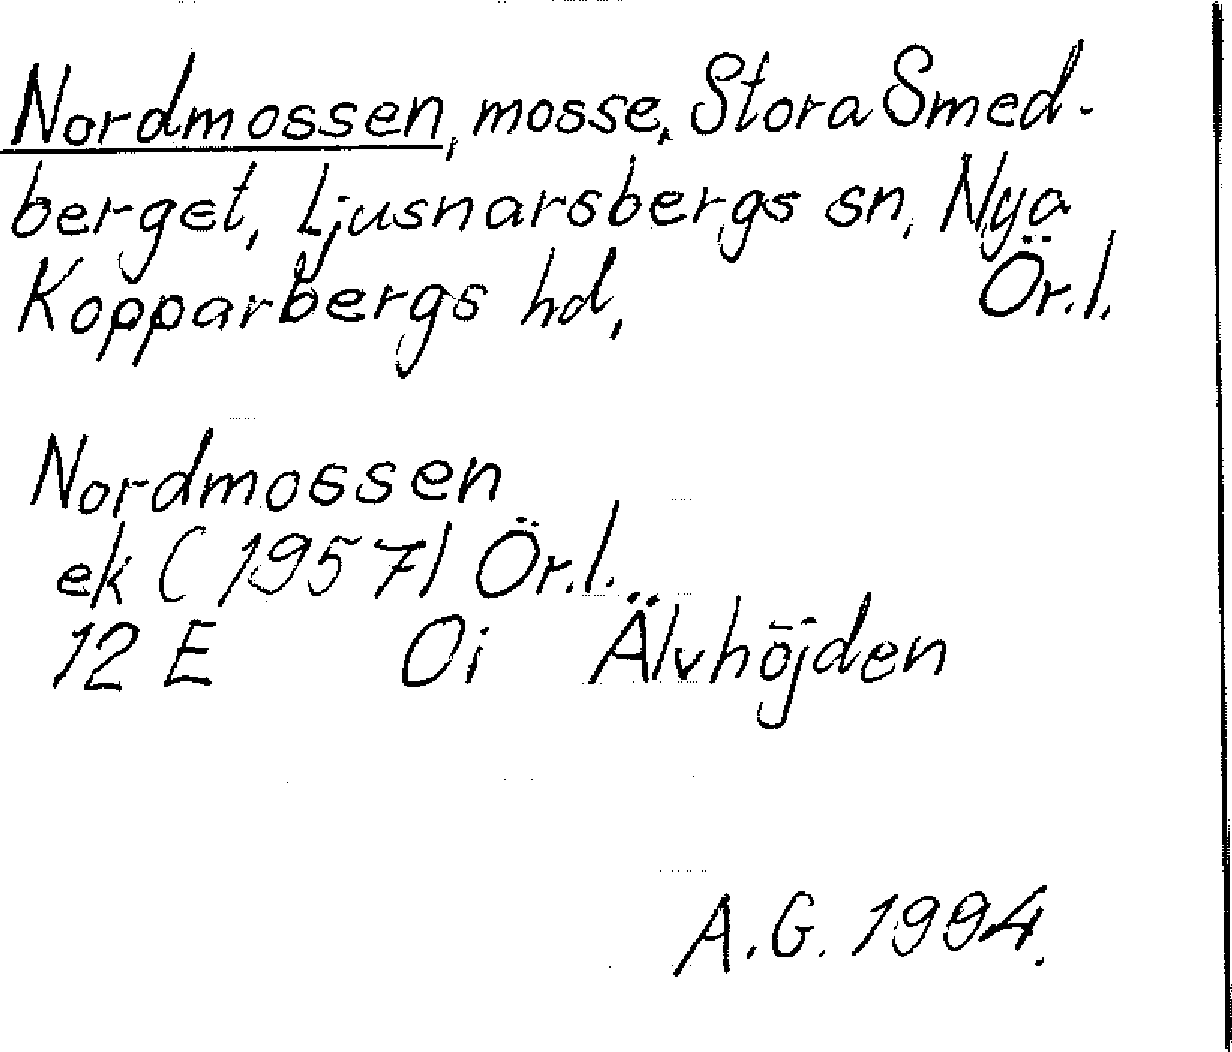 Nordmossen, mosse, Stora Smed-
berget, Ljusnarsbergs sn, Nya
Kopparbergs hd, Ör.l.
Nordmossen
ek (1957) Ör.l.
12 E 0i Älvhöjden
A.G. 1994.